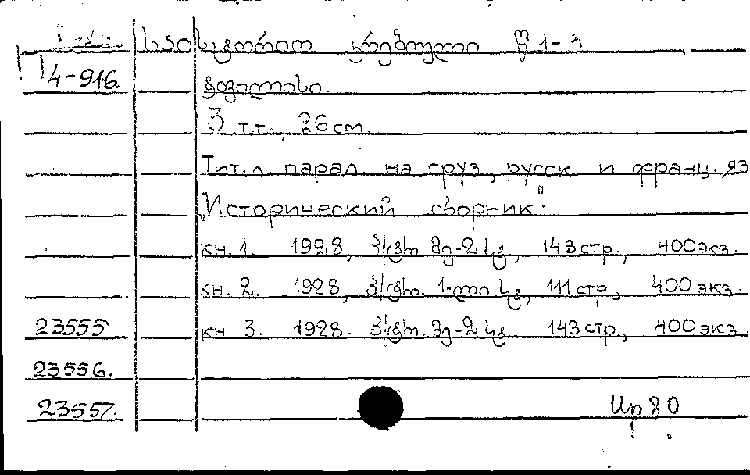 საისტორიო კრებული წ 1-3
14-916. ტფილისი.
3 т.т., 26 см.
Тит.л парал на груз, русск и франц. яз
"Исторический сборник".
кн. 1. 1928, მე-2 სტ, 143 стр., 400 экз.
кн. 2. 1928, 1-ლი სტ, 111 стр., 400 экз.
23555 кн 3. 1928. მე-2 სტ. 143 стр., 400 экз.
23556.
23557. Ир 80